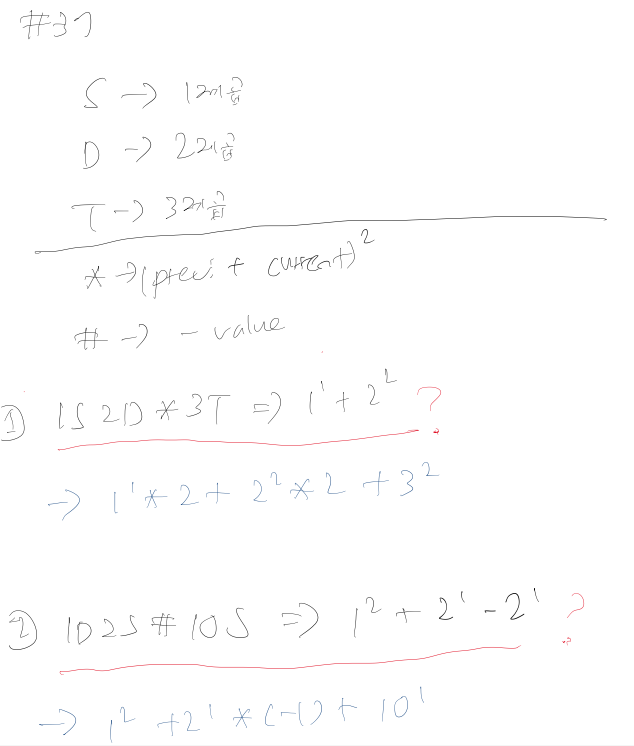 #31
S → 1제곱
D → 2제곱
T → 3제곱
* → (previ + current)²
# → - value
① 1S2D*3T ⇒ 1¹ + 2² ?
→ 1¹*2 + 2²*2 + 3²
② 1D2S#10S ⇒ 1² + 2¹ - 2¹ ?
→ 1² + 2¹*(-1) + 10¹